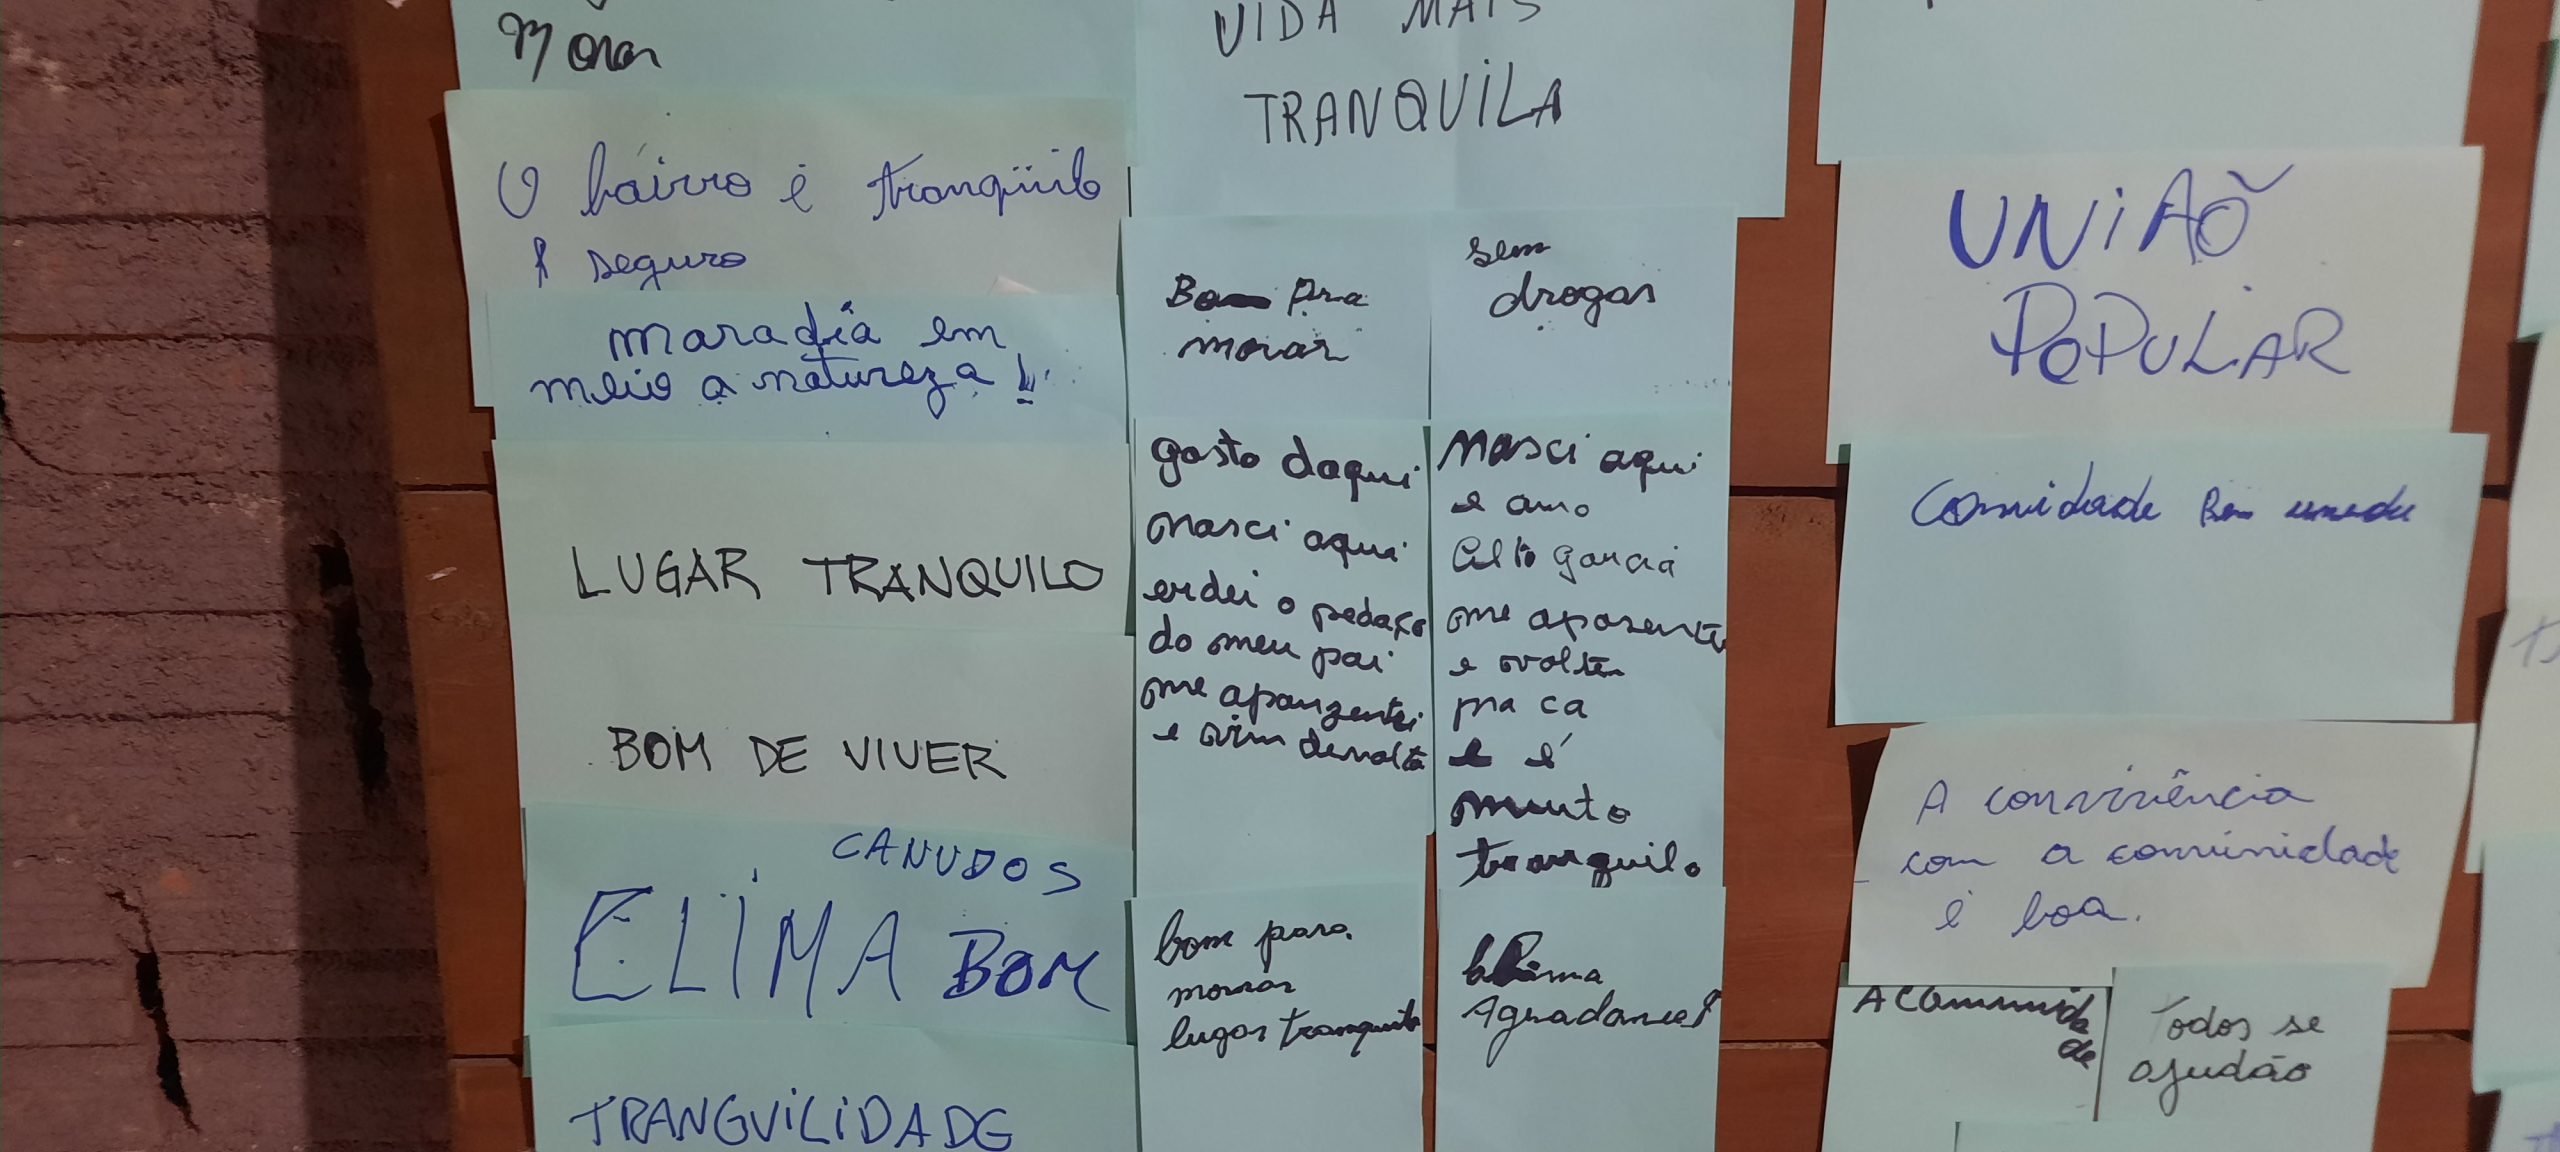 morar
O bairro é tranqüilo
e seguro
maradia em
meio a natureza!
LUGAR TRANQUILO
BOM DE VIVER
CANUDOS
ELIMA BOM
TRANGUILIDADE
VIDA MAIS
TRANQUILA
Bom pra
morar
sem
drogas
gosto daqui
nasci aqui
erdei o pedaço
do meu pai
me apouzentei
e vim devolta
Nasci aqui
e amo
Alto garcia
me aposentei
e voltei
pra ca
e é
muito
tranquilo
bom para
morrar
lugar tranquilo
Clima
Agradavel
UNIÃO
POPULAR
Comuidade Bem
A convivência
com a comunidade
é boa.
A Comunida
de
Todos se
ajudão